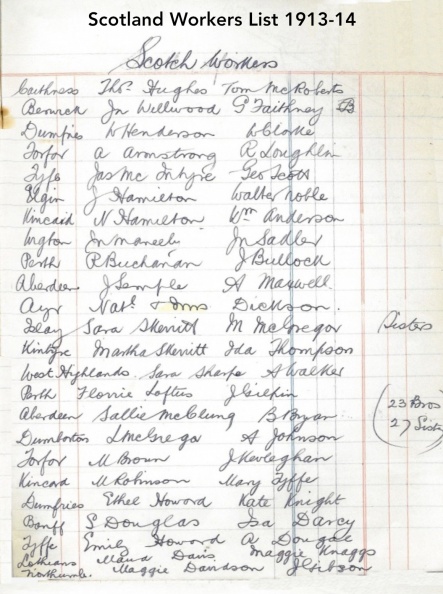 Scotland Workers List 1913-14
Scotch Workers
Caithness Thos. Hughes Tom McRoberts
Berwick Jn Wellwood G Faithney B
Dumfries W Henderson W Clarke
Forfor A Armstrong R Loughlin
Fyffe Jas Mc Intyre Geo Scott
Elgin J Hamilton Walter Noble
Kincaid N Hamilton Wm Anderson
Wigton Jn Maneely Jn Sadler
Perth R Buchanan J Bullock
Aberdeen J Semple A Maxwell
Ayr Natl & Dickson.
Islay Sara Skerritt M McGregor Sisters
Kintyre Martha Skerritt Ida Thompson
West Highlands. Sara Sharpe A Walker
Perth Florrie Loftus J Gilpin
Aberdeen Sallie McClung B Bryan 23 Bros
Dumborton L McGregor A Johnson 27 Sist
Forfor M Brown J Kevleghan
Kincard M Robinson Mary Fyffe
Dumfries Ethel Howard Kate Knight
Banff S Douglas Isa Darcy
Fyffe Emily Howard A Dougal
Lothians Maud Davis Maggie Knaggs
Northumb. Maggie Davidson J Gibson